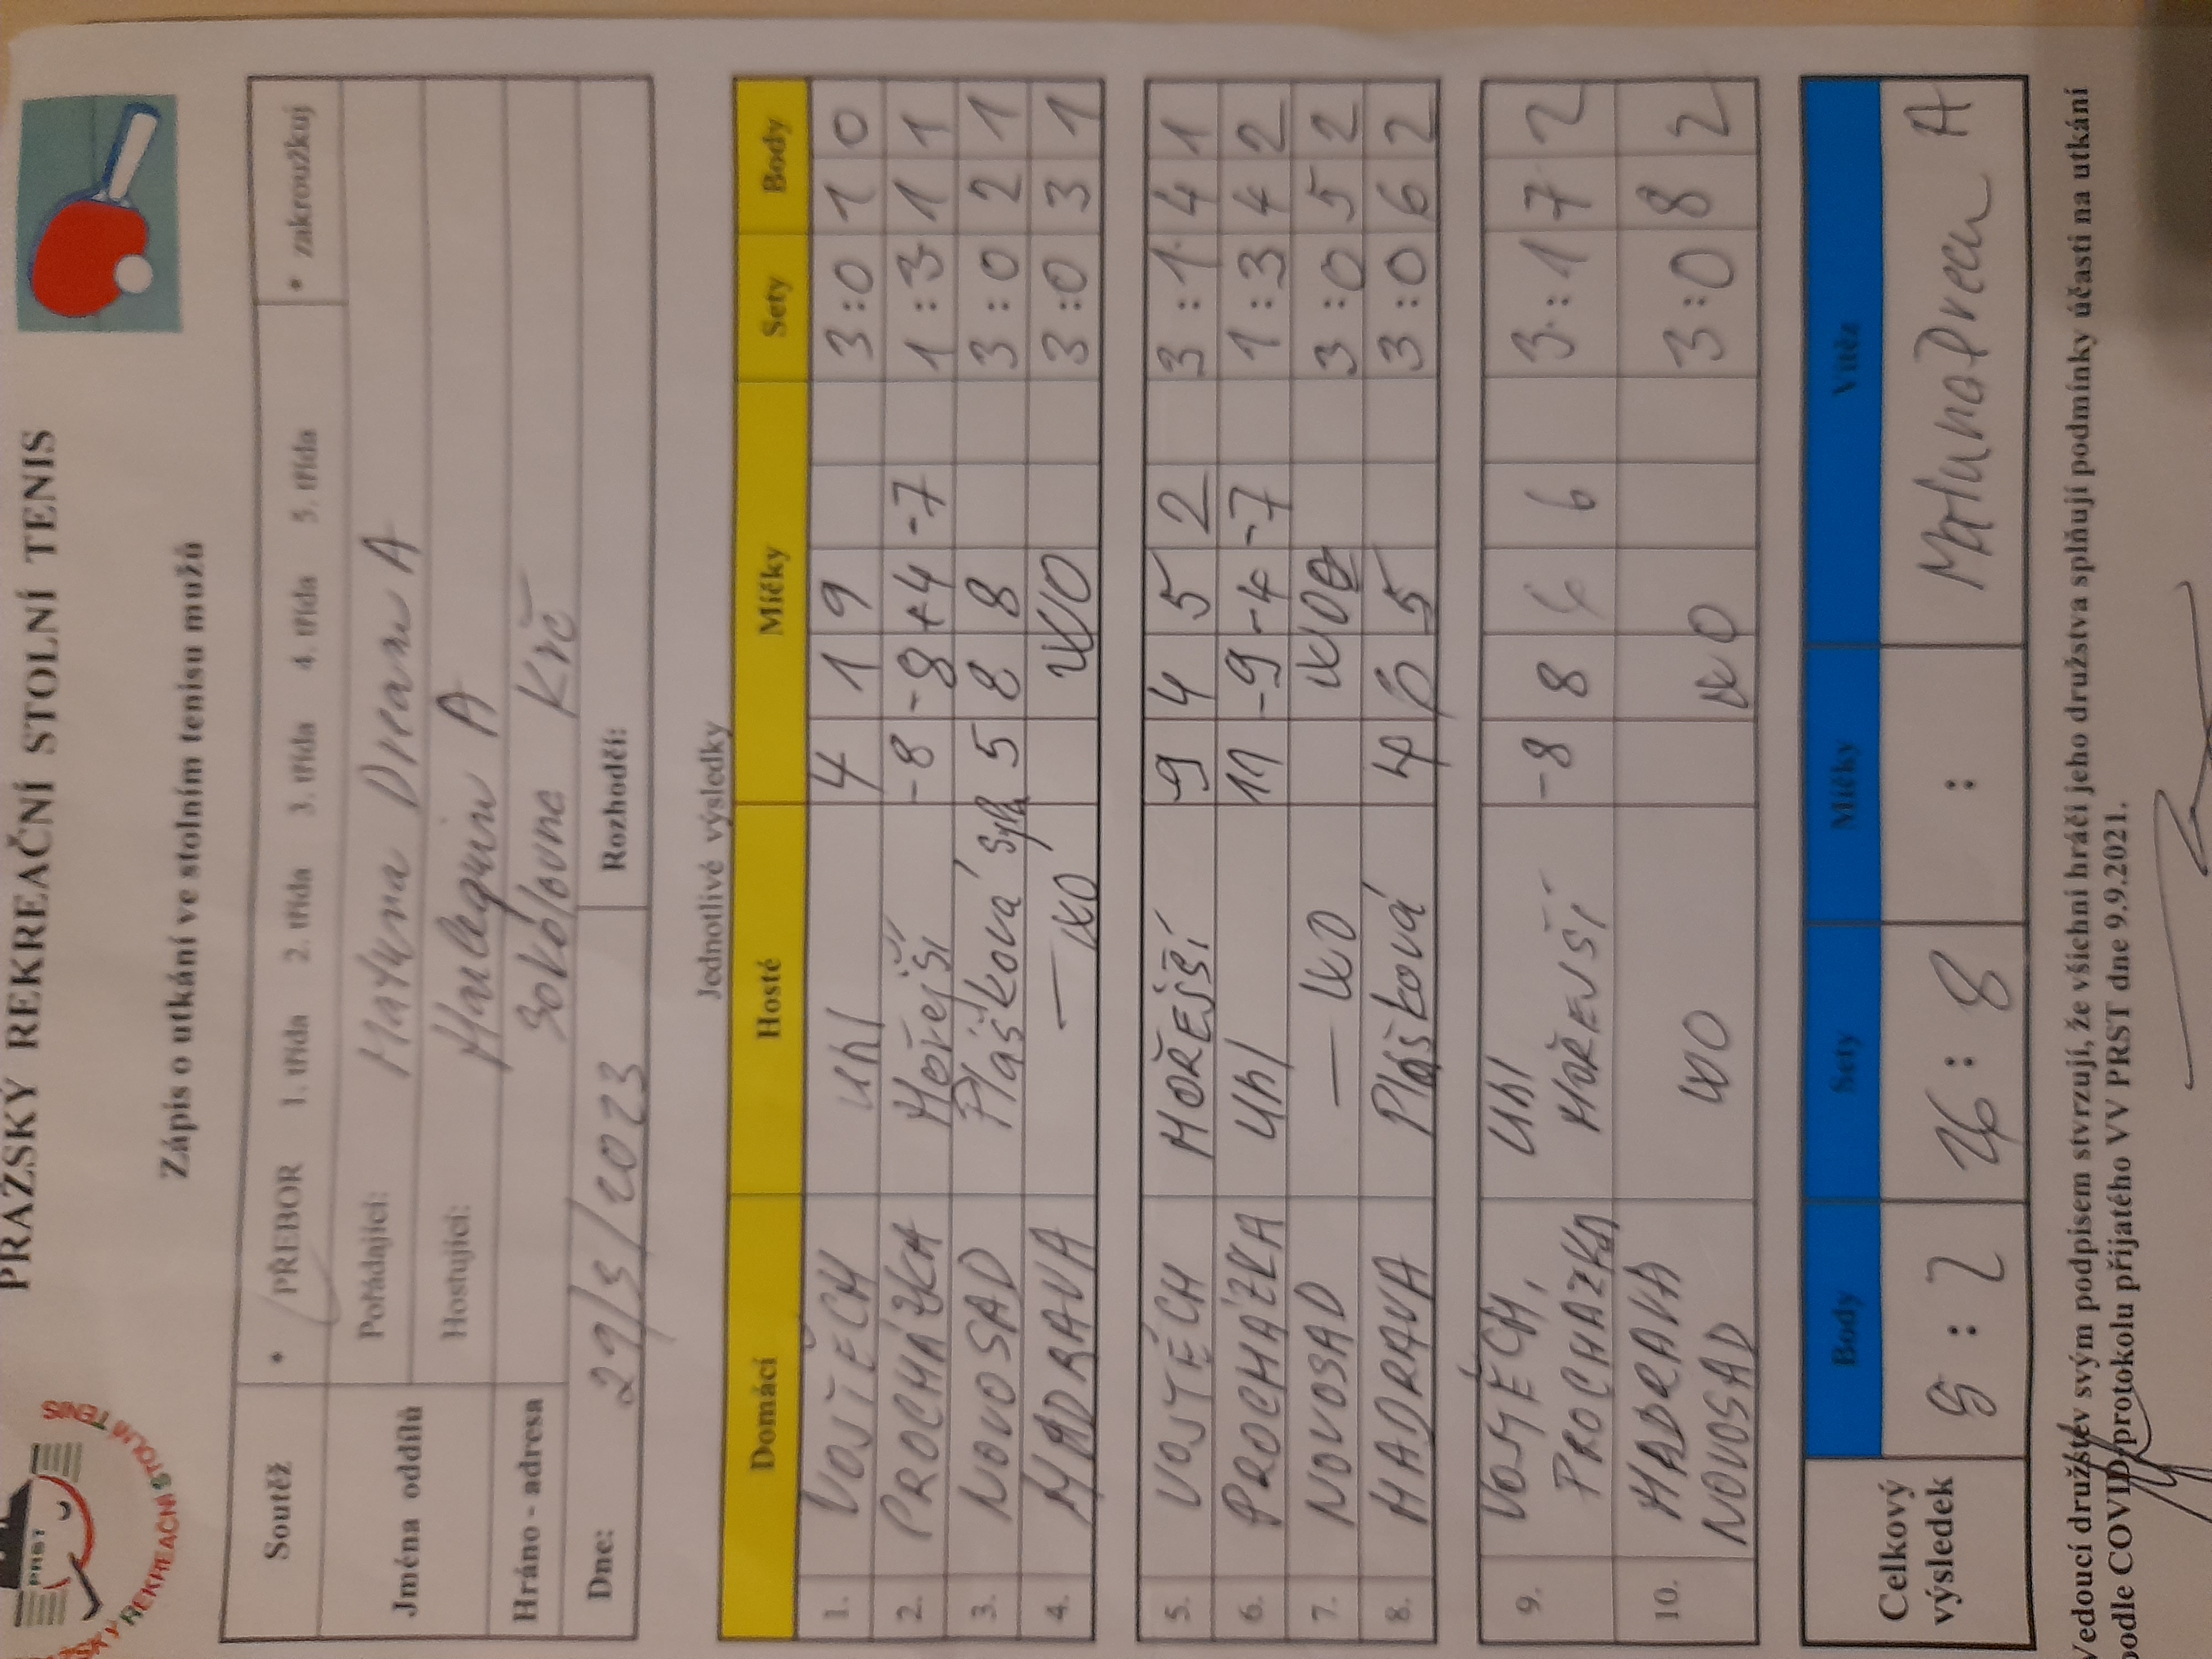 PRAŽSKÝ REKREAČNÍ STOLNÍ TENIS
PRST
PRAŽSKÝ REKREAČNÍ STOLNÍ TENIS
Zápis o utkání ve stolním tenisu mužů
Soutěž * PŘEBOR 1. třída 2. třída 3. třída 4. třída 5. třída * zakroužkuj
Jména oddílů Pořádající: Matuna Dream A
Hostující: Harlequin A
Hráno - adresa Sokolovna Krč
Dne: 29/3/2023 Rozhodčí:
Jednotlivé výsledky
Domácí Hosté Míčky Sety Body
1. VOJTĚCH Uhl 4 1 9 3:0 1 0
2. PROCHÁZKA Hořejší -8 -8 +4 -7 1:3 1 1
3. NOVOSAD Plášková 5 8 8 3:0 2 1
4. HADRAVA — WO WO 3:0 3 1
5. VOJTĚCH HOŘEJŠÍ -9 4 5 2 3:1 4 1
6. PROCHÁZKA Uhl 11 -9 -4 -7 1:3 4 2
7. NOVOSAD — WO WO 3:0 5 2
8. HADRAVA Plášková 4 6 5 3:0 6 2
9. VOJTĚCH, Uhl -8 8 4 6 3:1 7 2
PROCHÁZKA HOŘEJŠÍ
10. HADRAVA WO WO 3:0 8 2
NOVOSAD
Celkový výsledek Body Sety Míčky Vítěz
8 : 2 26 : 8 : Matuna Dream A
Vedoucí družstev svým podpisem stvrzují, že všichni hráči jeho družstva splňují podmínky účasti na utkání
podle COVID protokolu přijatého VV PRST dne 9.9.2021.